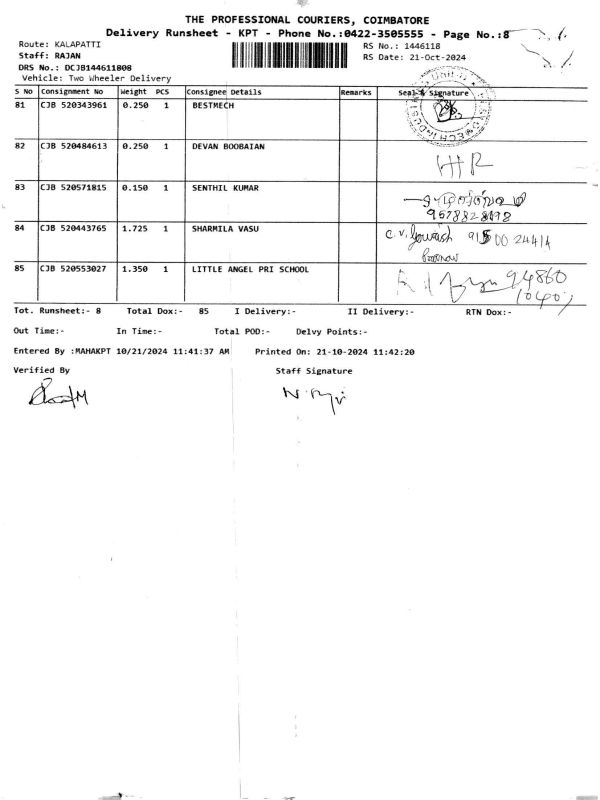 THE PROFESSIONAL COURIERS, COIMBATORE
Delivery Runsheet - KPT - Phone No.:0422-3505555 - Page No.:8
Route: KALAPATTI
RS No.: 1446118
Staff: RAJAN
RS Date: 21-Oct-2024
DRS No.: DCJB144611808
Vehicle: Two Wheeler Delivery
S No Consignment No Weight PCS Consignee Details Remarks Seal & Signature
81 CJB 520343961 0.250 1 BESTMECH
82 CJB 520484613 0.250 1 DEVAN BOOBAIAN
83 CJB 520571815 0.150 1 SENTHIL KUMAR
84 CJB 520443765 1.725 1 SHARMILA VASU C.V.
85 CJB 520553027 1.350 1 LITTLE ANGEL PRI SCHOOL 94860
Tot. Runsheet:- 8 Total Dox:- 85 I Delivery:- II Delivery:- RTN Dox:-
Out Time:- In Time:- Total POD:- Delvy Points:-
Entered By :MAHAKPT 10/21/2024 11:41:37 AM Printed On: 21-10-2024 11:42:20
Verified By Staff Signature